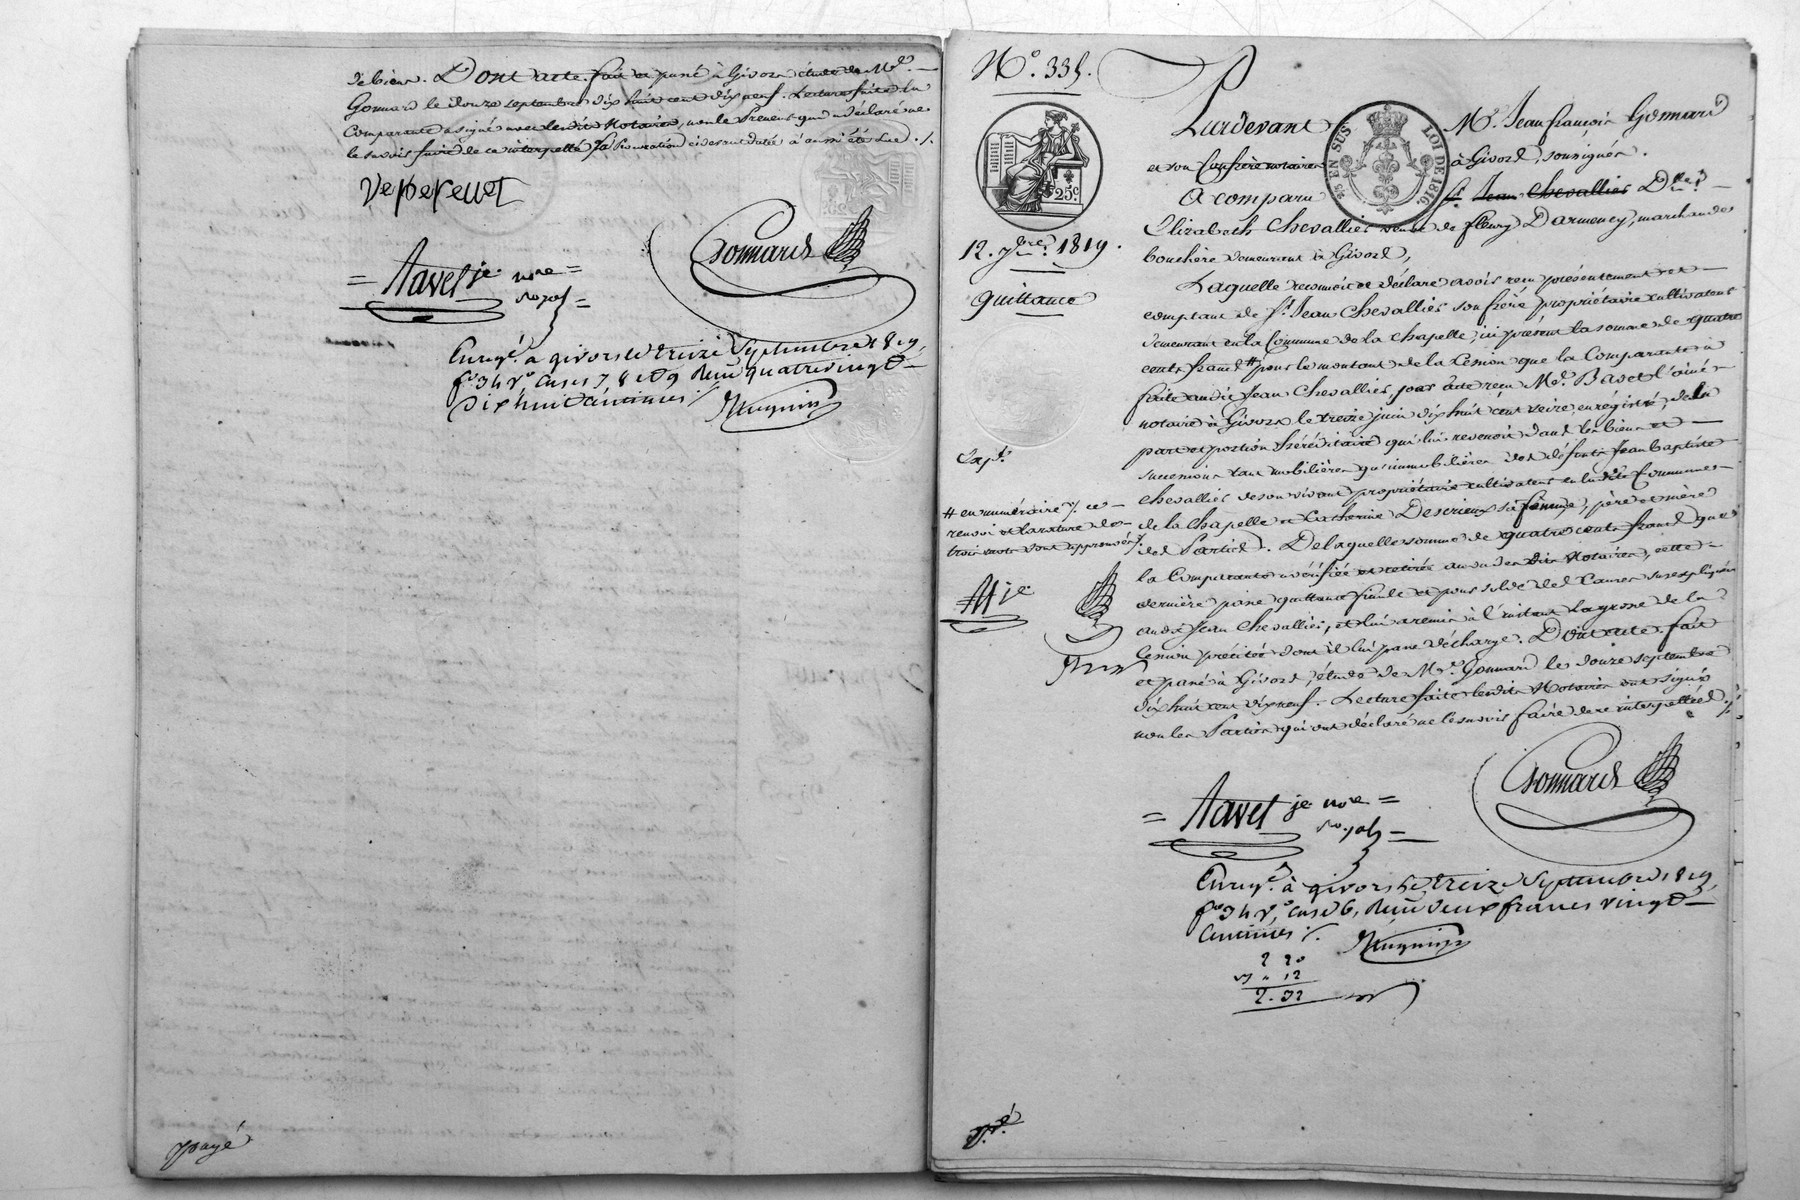 de biens. Dont acte. fait et passé à Givors étude de Me.
Gonnard le douze septembre dix huit cent dix neuf. Lecture faite la
Comparante a signé avec lesdits Notaires, non le Preneur qui a déclaré ne
le savoir faire de ce interpellé la Procuration ci devant datée à aussi été lue ./.
Gonnard
= Navet je. nore =
royal =
Enregé. à givors le treize Septembre 1819,
fo. 34 vo, Cases 7, 8 et 9 Reçu quatrevingt
Dix huit centimes
payé
No. 335.
25c.
25 EN SUS
LOI DE 1816.
12. 7bre. 1819.
quittance
Expn.
Pardevant Me. Jean françois Gonnard
et son Confrère notaires à Givors, soussignés.
A comparu Sr. Jean Chevallier Dlle.
Elizabeth Chevallier veuve de fleury Darmency, marchande
bouchère demeurant à Givors,
Laquelle reconnoit et déclare avoir reçu présentement et
comptant de Sr. Jean Chevallier son frère propriétaire cultivateur
demeurant en la Commune de la Chapelle, ici présent la somme de quatre
cents francs # pour le montant de la Cession que la Comparante a
faite audit Jean Chevallier, par acte reçu Me. Basset l'ainé
notaire à Givors le treize juin dix huit cent seize, enregistré, de la
part et portion héréditaire qui lui revenoit dans les biens et
succession tant mobilière qu'immobilière des défunts Jean Baptiste
Chevallier de son vivant propriétaire cultivateur en ladite Commune
de la Chapelle et Catherine Descrieux sa femme, père et mère
des Parties. De laquelle somme de quatre cents francs que
la Comparante a vérifiée et retirée au vu desdits Notaires, cette
dernière passe quittance finale et pour solde des Causes susexpliquées
audit Jean Chevallier, et lui a remis à l'instant la grosse de la
Cession précitée dont il lui passe décharge. Dont acte. fait
et passé à Givors, étude de Me. Gonnard le douze septembre
dix huit cent dix neuf. Lecture faite lesdits Notaires ont signé
non les Parties qui ont déclaré ne le savoir faire de ce interpellés ./.
# en numéraire ./. ce
renvoi et la rature de
trois mots sont approuvés ./.
Gonnard
= Navet je. nore =
royal =
Enregé. à givors le treize Septembre 1819,
fo. 34 vo, Case 6, Reçu deux francs vingt
Centimes ./.
2 20
" 12
2. 32